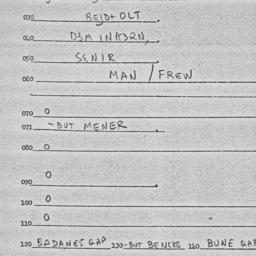 030 BEJD+ OLT.
040 D3M ING32N,
050 SENIR
060 MAN / FREW
070 O
071 -BUT MENER.
080 O
090 O
100 O
110 O
120 EADANES GAP 130-BUT BENCKE 140 BUNE GAP